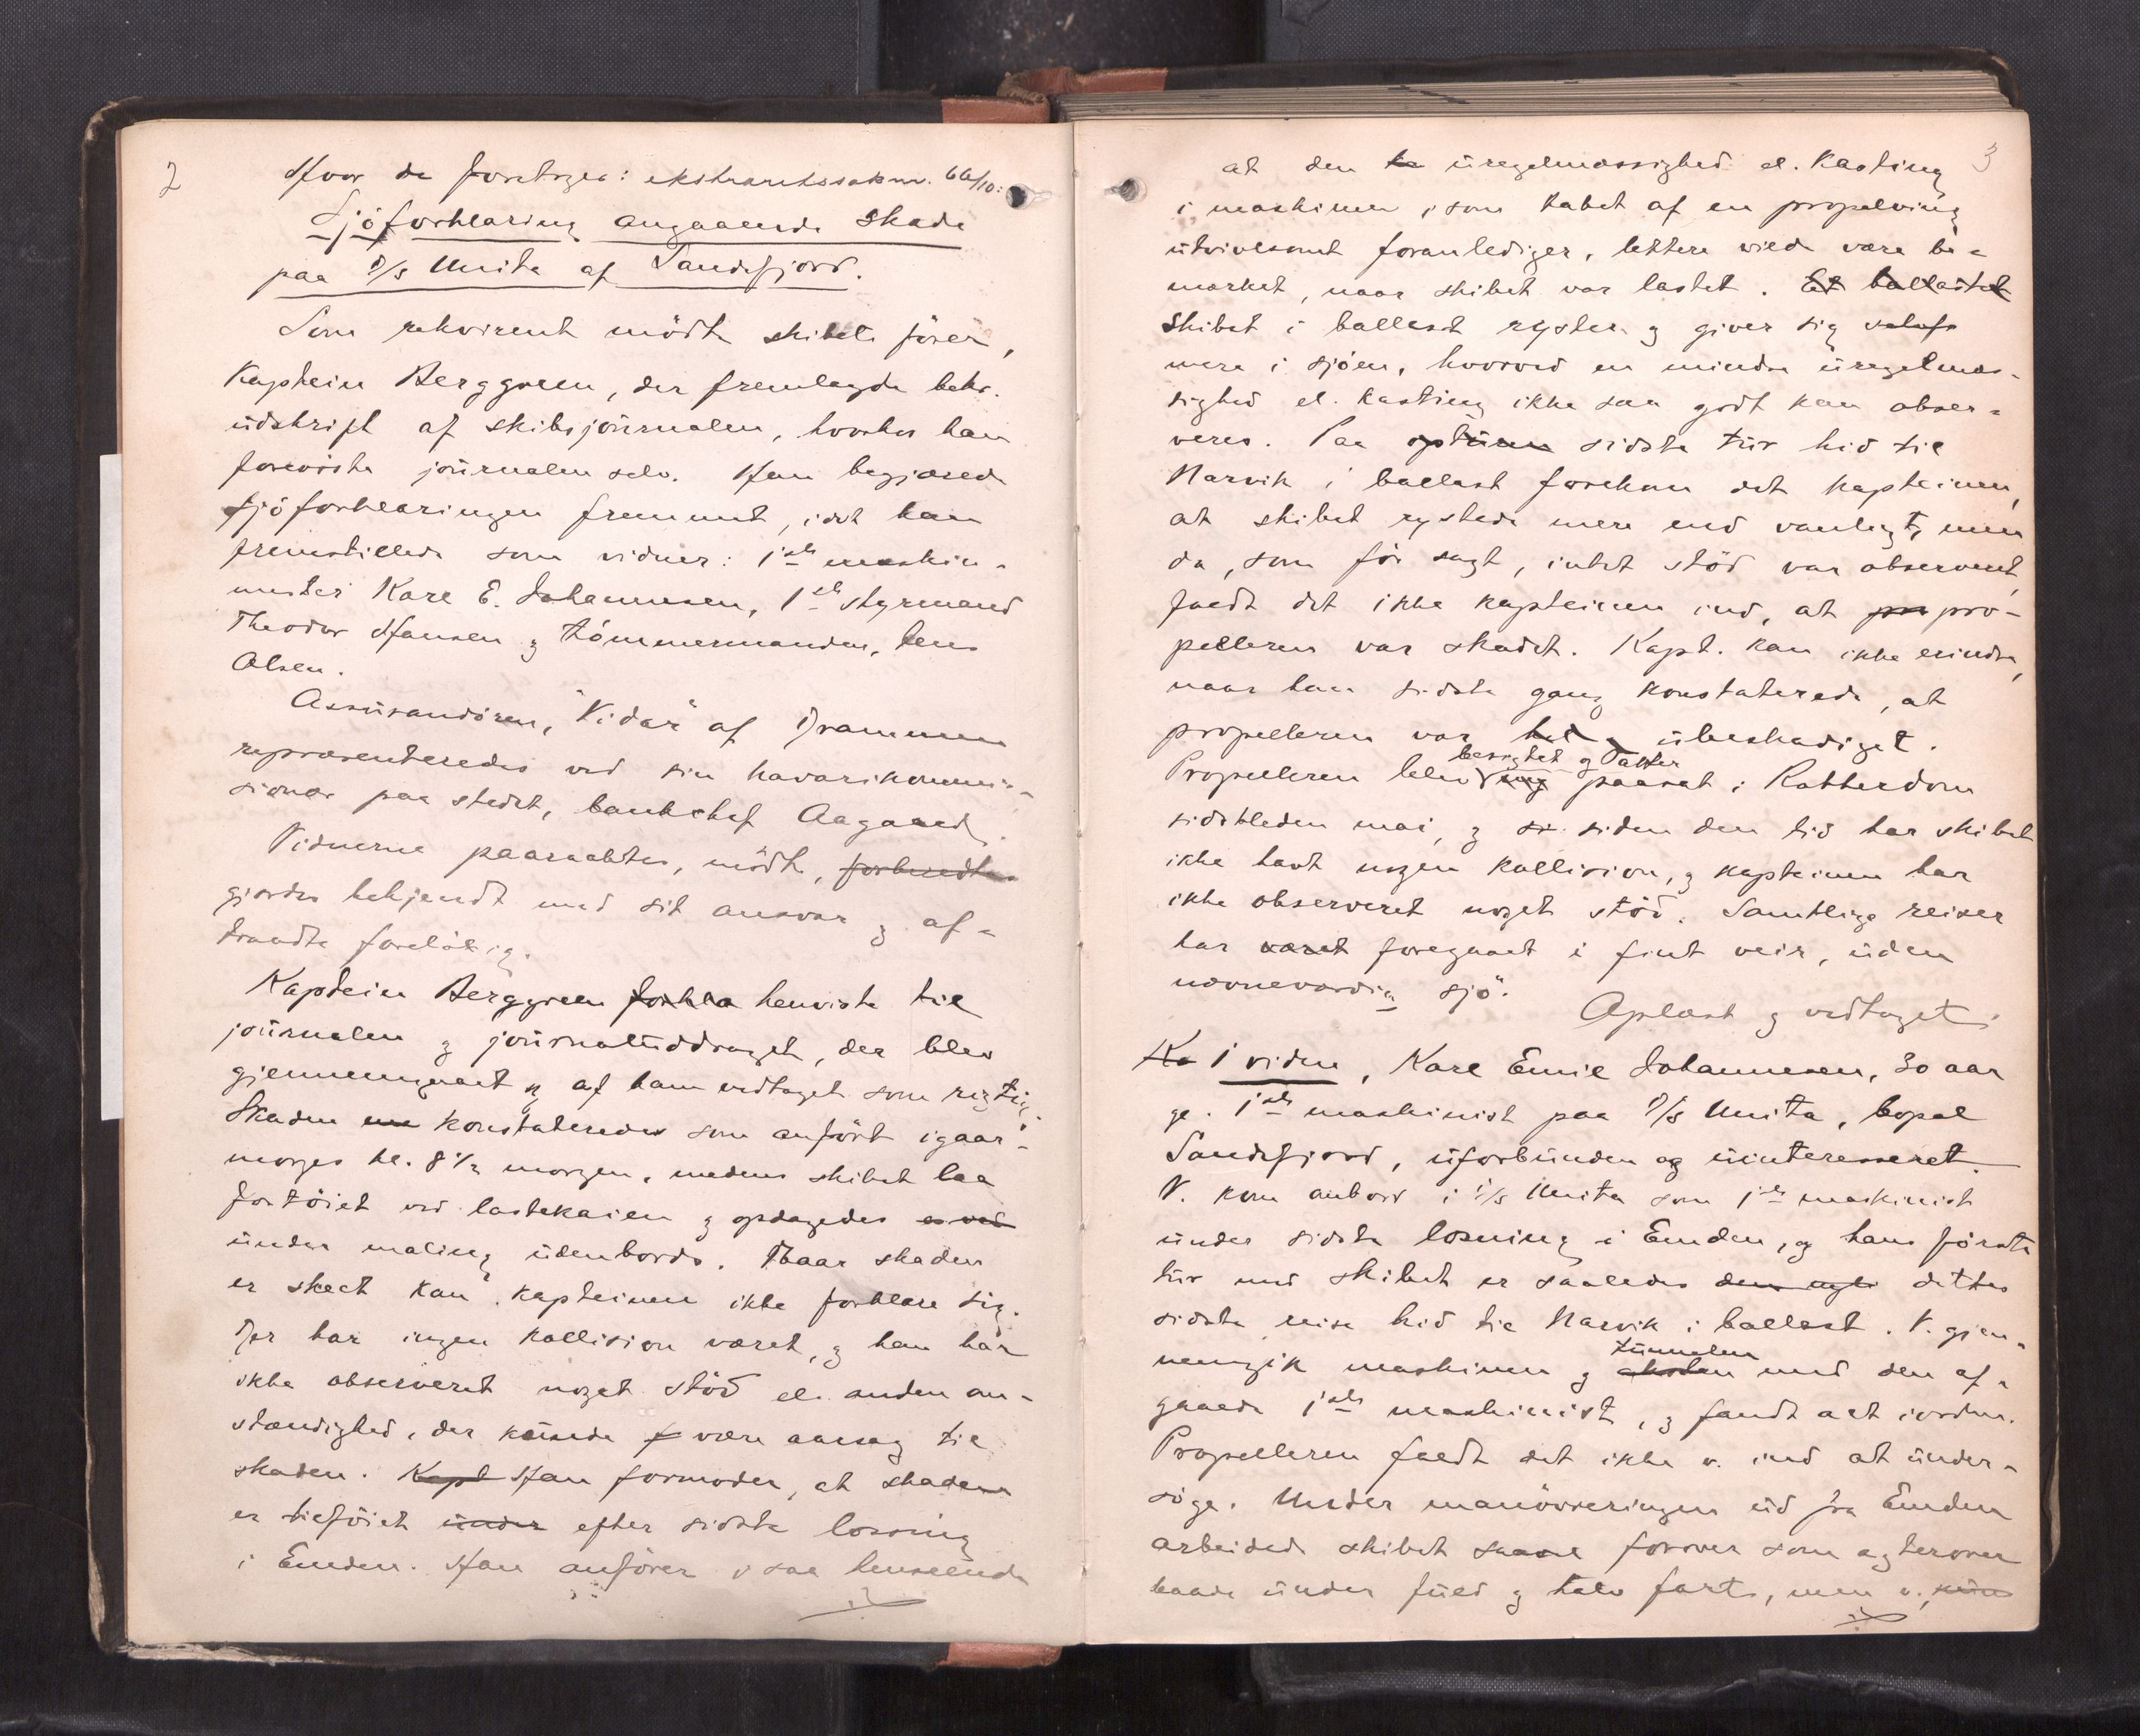 2
Hvor da foretoges: ekstraretssak nr. 66/10:
Sjöforklaring angaaende Skade
paa D/S Unita af Sandefjord.
Som rekvirent mödte skibets förer,
Kaptein Berggreen, der fremlagde bekr.
udskrift af skibsjournalen, hvorhos han
foreviste journalen selv. Han begjærede
sjöforklaringen fremmet, idet han
fremstillede som vidner: 1ste maskin-
mester Kare E. Johannesen, 1ste styrmand
Theodor Hansen og tömmermanden, Jens
Olsen.
Assurandören, "Vidar" af Drammen
repræsenteredes ved sin havarikommis-
sionær paa stedet, bankchef Aagaard.
Vidnerne paaraabtes, mödte, forberedtes
gjordes bekjendt med sit ansvar og af-
traadte forelöbig.
Kaptein Berggreen forkla henviste til
journalen og journaluddraget, der blev
gjennemgaaet og af ham vedtaget som rigtig.
Skaden konstateredes som anfört igaar
morges kl. 8 1/2 morgen, medens skibet laa
fortöiet ved lastekaien og opdagedes
under maling udenbords. Naar skaden
er skeet kan kapteinen ikke forklare sig.
Der har ingen kollision været, og han har
ikke observeret noget stöd el. anden om-
stændighed, der kunde f være aarsag til
skaden. Kapt Han formoder, at skaden
er tilföiet under efter sidste losning
i Emden. Han anförer i saa henseende
3
at den uregelmæssighed el. Kasting
i maskinen, som tabet af en propelving
utvivlsomt foranlediger, lettere vilde være be-
mærket, naar skibet var lastet. Et ballastet
Skibet i ballast ryster og giver sig
mere i sjöen, hvorved en mindre uregelmæs-
sighed el. kasting ikke saa godt kan obser-
veres. Paa opturen sidste tur hid til
Narvik i ballast forekom det kapteinen,
at skibet rystede mere end vanligt, men
da, som för sagt, intet stöd var observeret,
faldt det ikke kapteinen ind, at pro-
pelleren var skadet. Kapt. kan ikke erindre,
naar han sidste gang konstaterede, at
propelleren var hel ubeskadiget.
besigtet og
Propelleren blev paasat i Rotterdam
sidstleden mai, og siden den tid har skibet
ikke havt nogen kollision, og kapteinen har
ikke observeret noget stöd. Samtlige reiser
har været foregaaet i fint veir, uden
nævneværdig sjö.
Oplæst og vedtaget.
Ka 1 vidne, Kare Emil Johannesen, 30 aar
gl. 1ste maskinist paa D/S Unita, bopæl
Sandefjord, uforbunden og uinteresseret.
V. kom anbord i D/S Unita som 1ste maskinist
under sidste losning i Emden, og hans förste
tur med skibet er saaledes dettes
sidste reise hid til Narvik i ballast. V. gjen-
tunnelen
nemgik maskinen og aksten med den af-
gaaede 1ste maskinist, og fandt alt iorden.
Propelleren faldt det ikke v. ind at under-
söge. Under manövreringen ud fra Emden
arbeidede skibet saavel forover som agterover
baade under fuld og halv fart, men v. kun